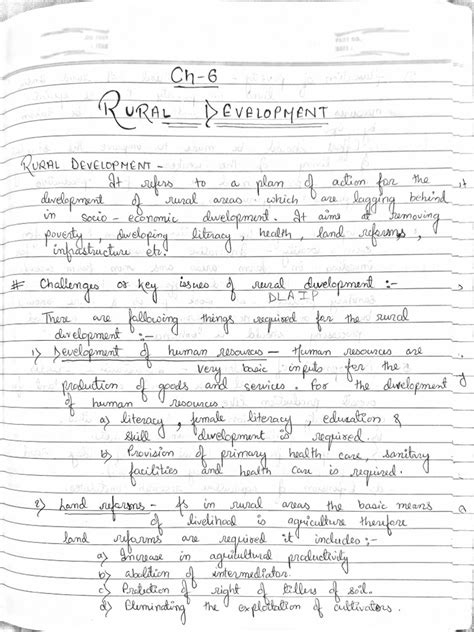 Ch-6
RURAL DEVELOPMENT
RURAL DEVELOPMENT -
It refers to a plan of action for the
development of rural areas which are lagging behind
in socio-economic development. It aims at removing
poverty, developing literacy, health, land reforms,
infrastructure etc.
# Challenges or key issues of rural development :-
DLAIP
There are following things required for the rural
development :-
1) Development of human resources - Human resources are
very basic inputs for the
production of goods and services. For the development
of human resources
a) literacy, female literacy, education &
skill development is required.
b) Provision of primary health care, sanitary
facilities and health care is required.
2) Land reforms - As in rural areas the basic means
of livelihood is agriculture therefore
land reforms are required it includes :-
a) Increase in agricultural productivity
b) abolition of intermediator.
c) Protection of right of tillers of soil.
d) Eleminating the exploitation of cultivators.